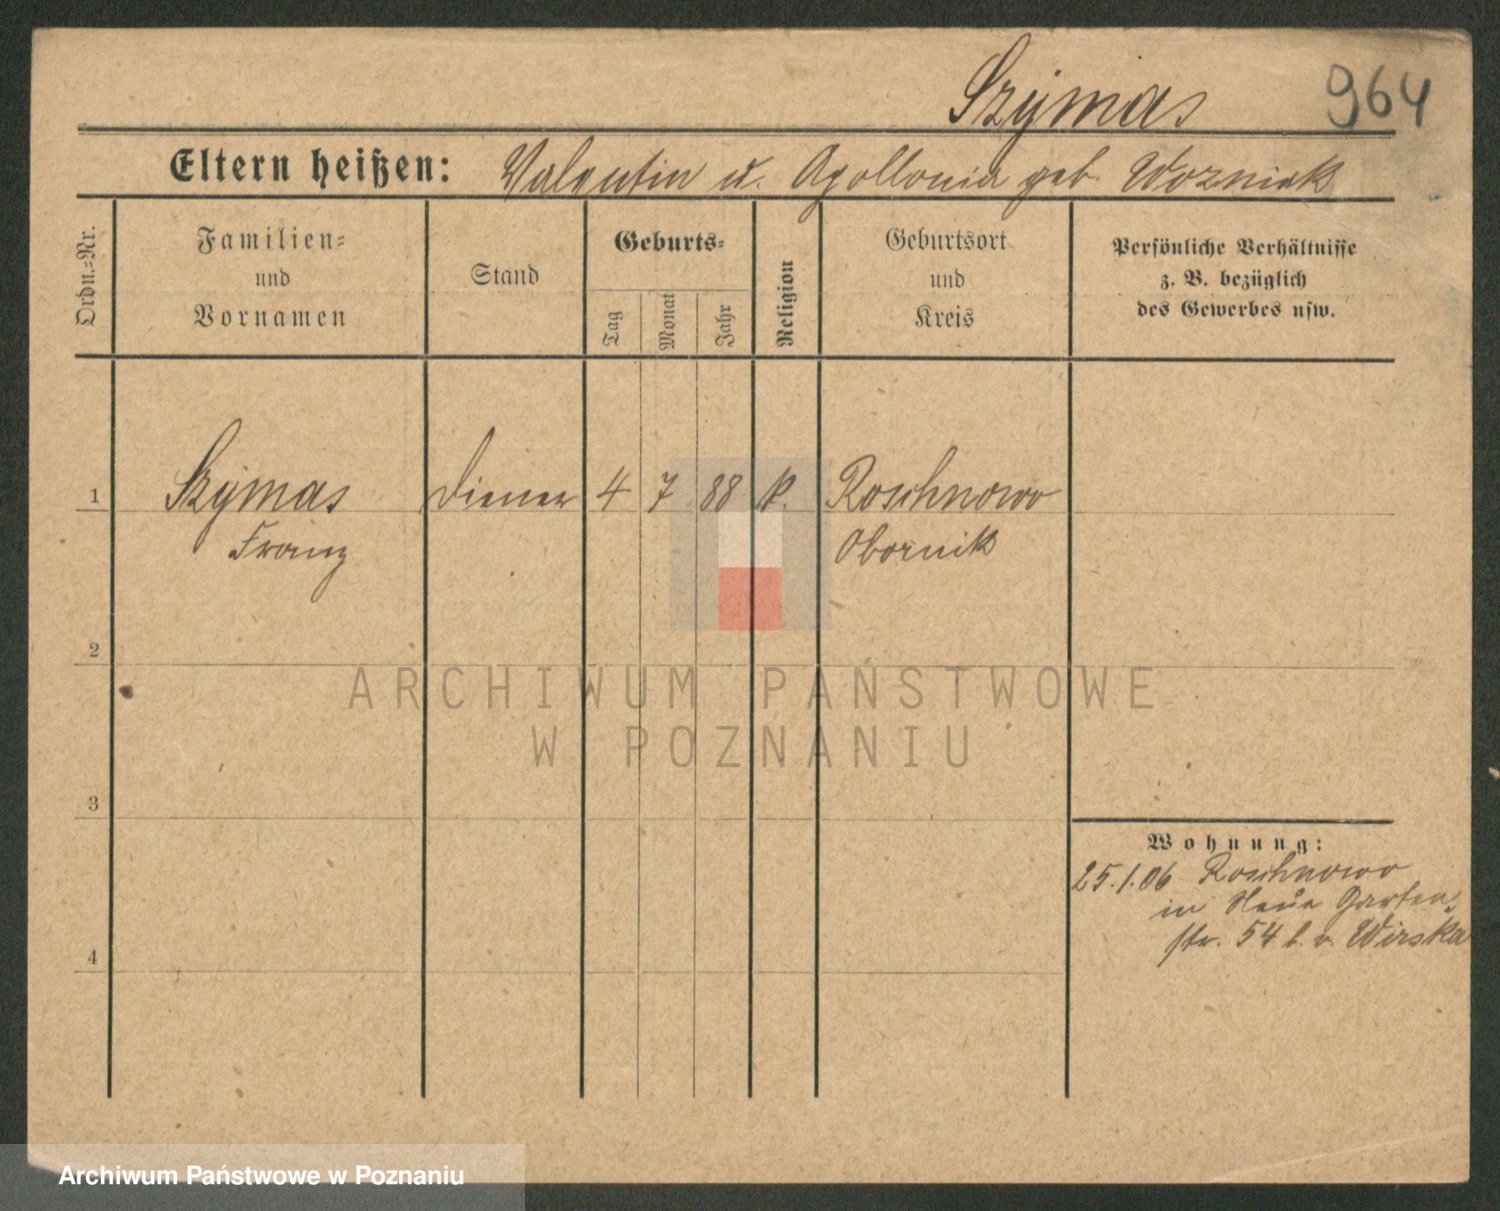 Szymas 964
Eltern heißen: Valentin u. Apollonia geb. Wozniak
Ordn.-Nr.
Familien-
und
Vornamen
Stand
Geburts-
Tag
Monat
Jahr
Religion
Geburtsort
und
Kreis
Persönliche Verhältnisse
z. B. bezüglich
des Gewerbes usw.
1 Szymas Diener 4 7 88 k. Roschnowo
Franz Obornik
2
3
4
Wohnung:
25.1.06 Roschnowo
in Neue Garten-
str. 54 b. v. Wirska
ARCHIWUM PAŃSTWOWE
W POZNANIU
Archiwum Państwowe w Poznaniu